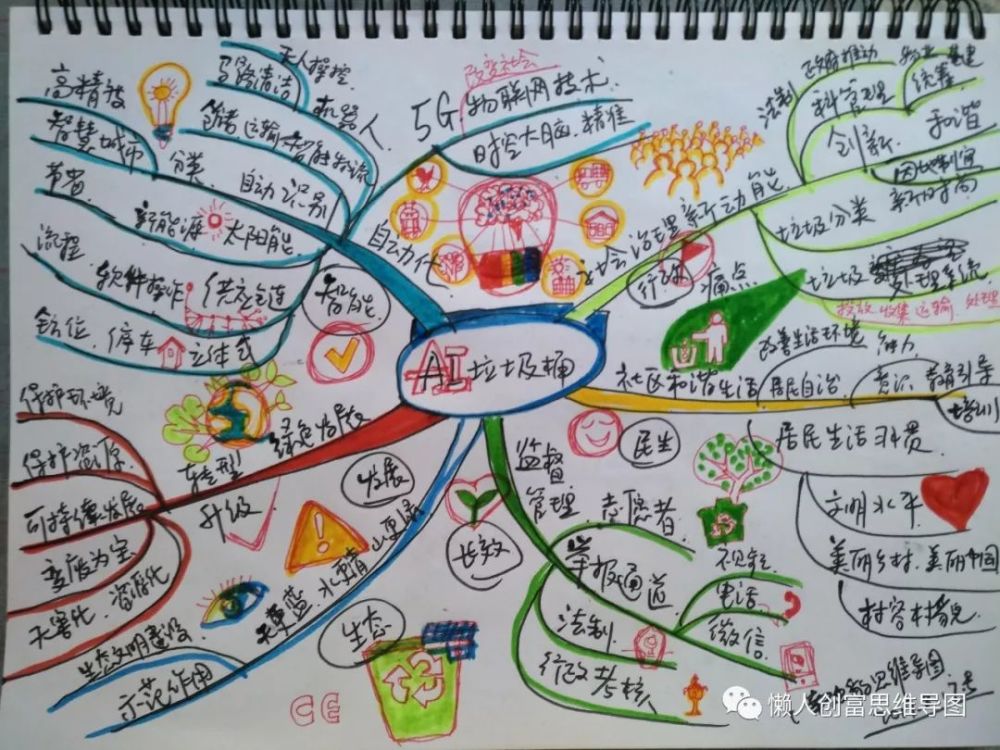 AI垃圾桶
改变社会
5G 物联网技术
时空大脑 精准
无人操控
马路清洁
机器人
仓储运输 智能物流
高精技
智慧城市
分类
自动识别
节省
新能源 太阳能
自动化
流程
软件操作
供应链
智能
钻位
停车
立体式
社会治理新动能
法制
政府推动
科管理
统筹
基建
创新
和谐
因地制宜
新时尚
垃圾分类
行动
痛点
垃圾
处理系统
投放 收集 运输 处理
社区和谐生活
改善生活环境
居民自治
能力
意识
教育引导
培训
民生
居民生活习惯
文明水平
美丽乡村 美丽中国
村容村貌
监督
管理
志愿者
举报通道
视频
电话
微信
法制
行政考核
长效
绿色发展
转型
升级
发展
保护环境
保护资源
可持续发展
变废为宝
无害化 资源化
天更蓝 水更清 山更绿
生态文明建设
示范作用
生态
CE
思维导图
懒人创富思维导图